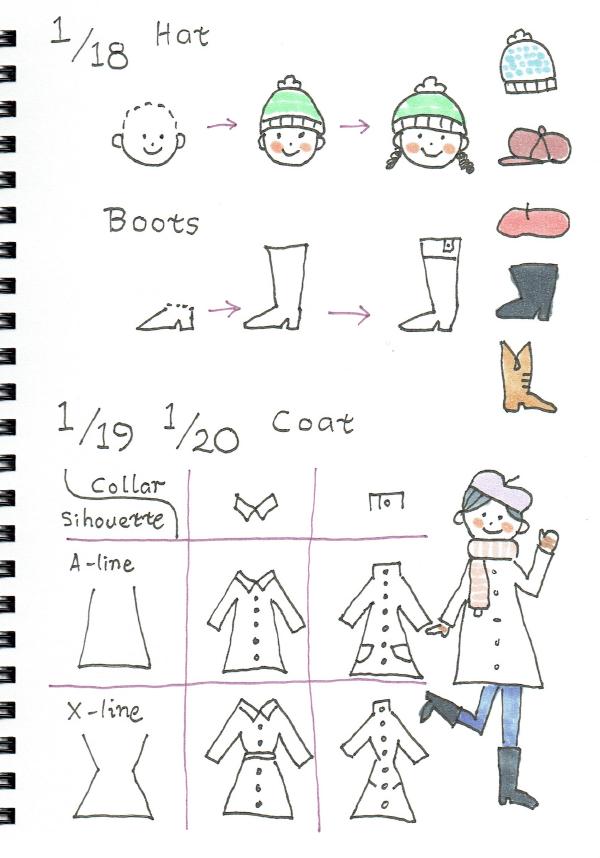 1/18 Hat
Boots
1/19 1/20 Coat
Collar
Sihouette
A-line
X-line